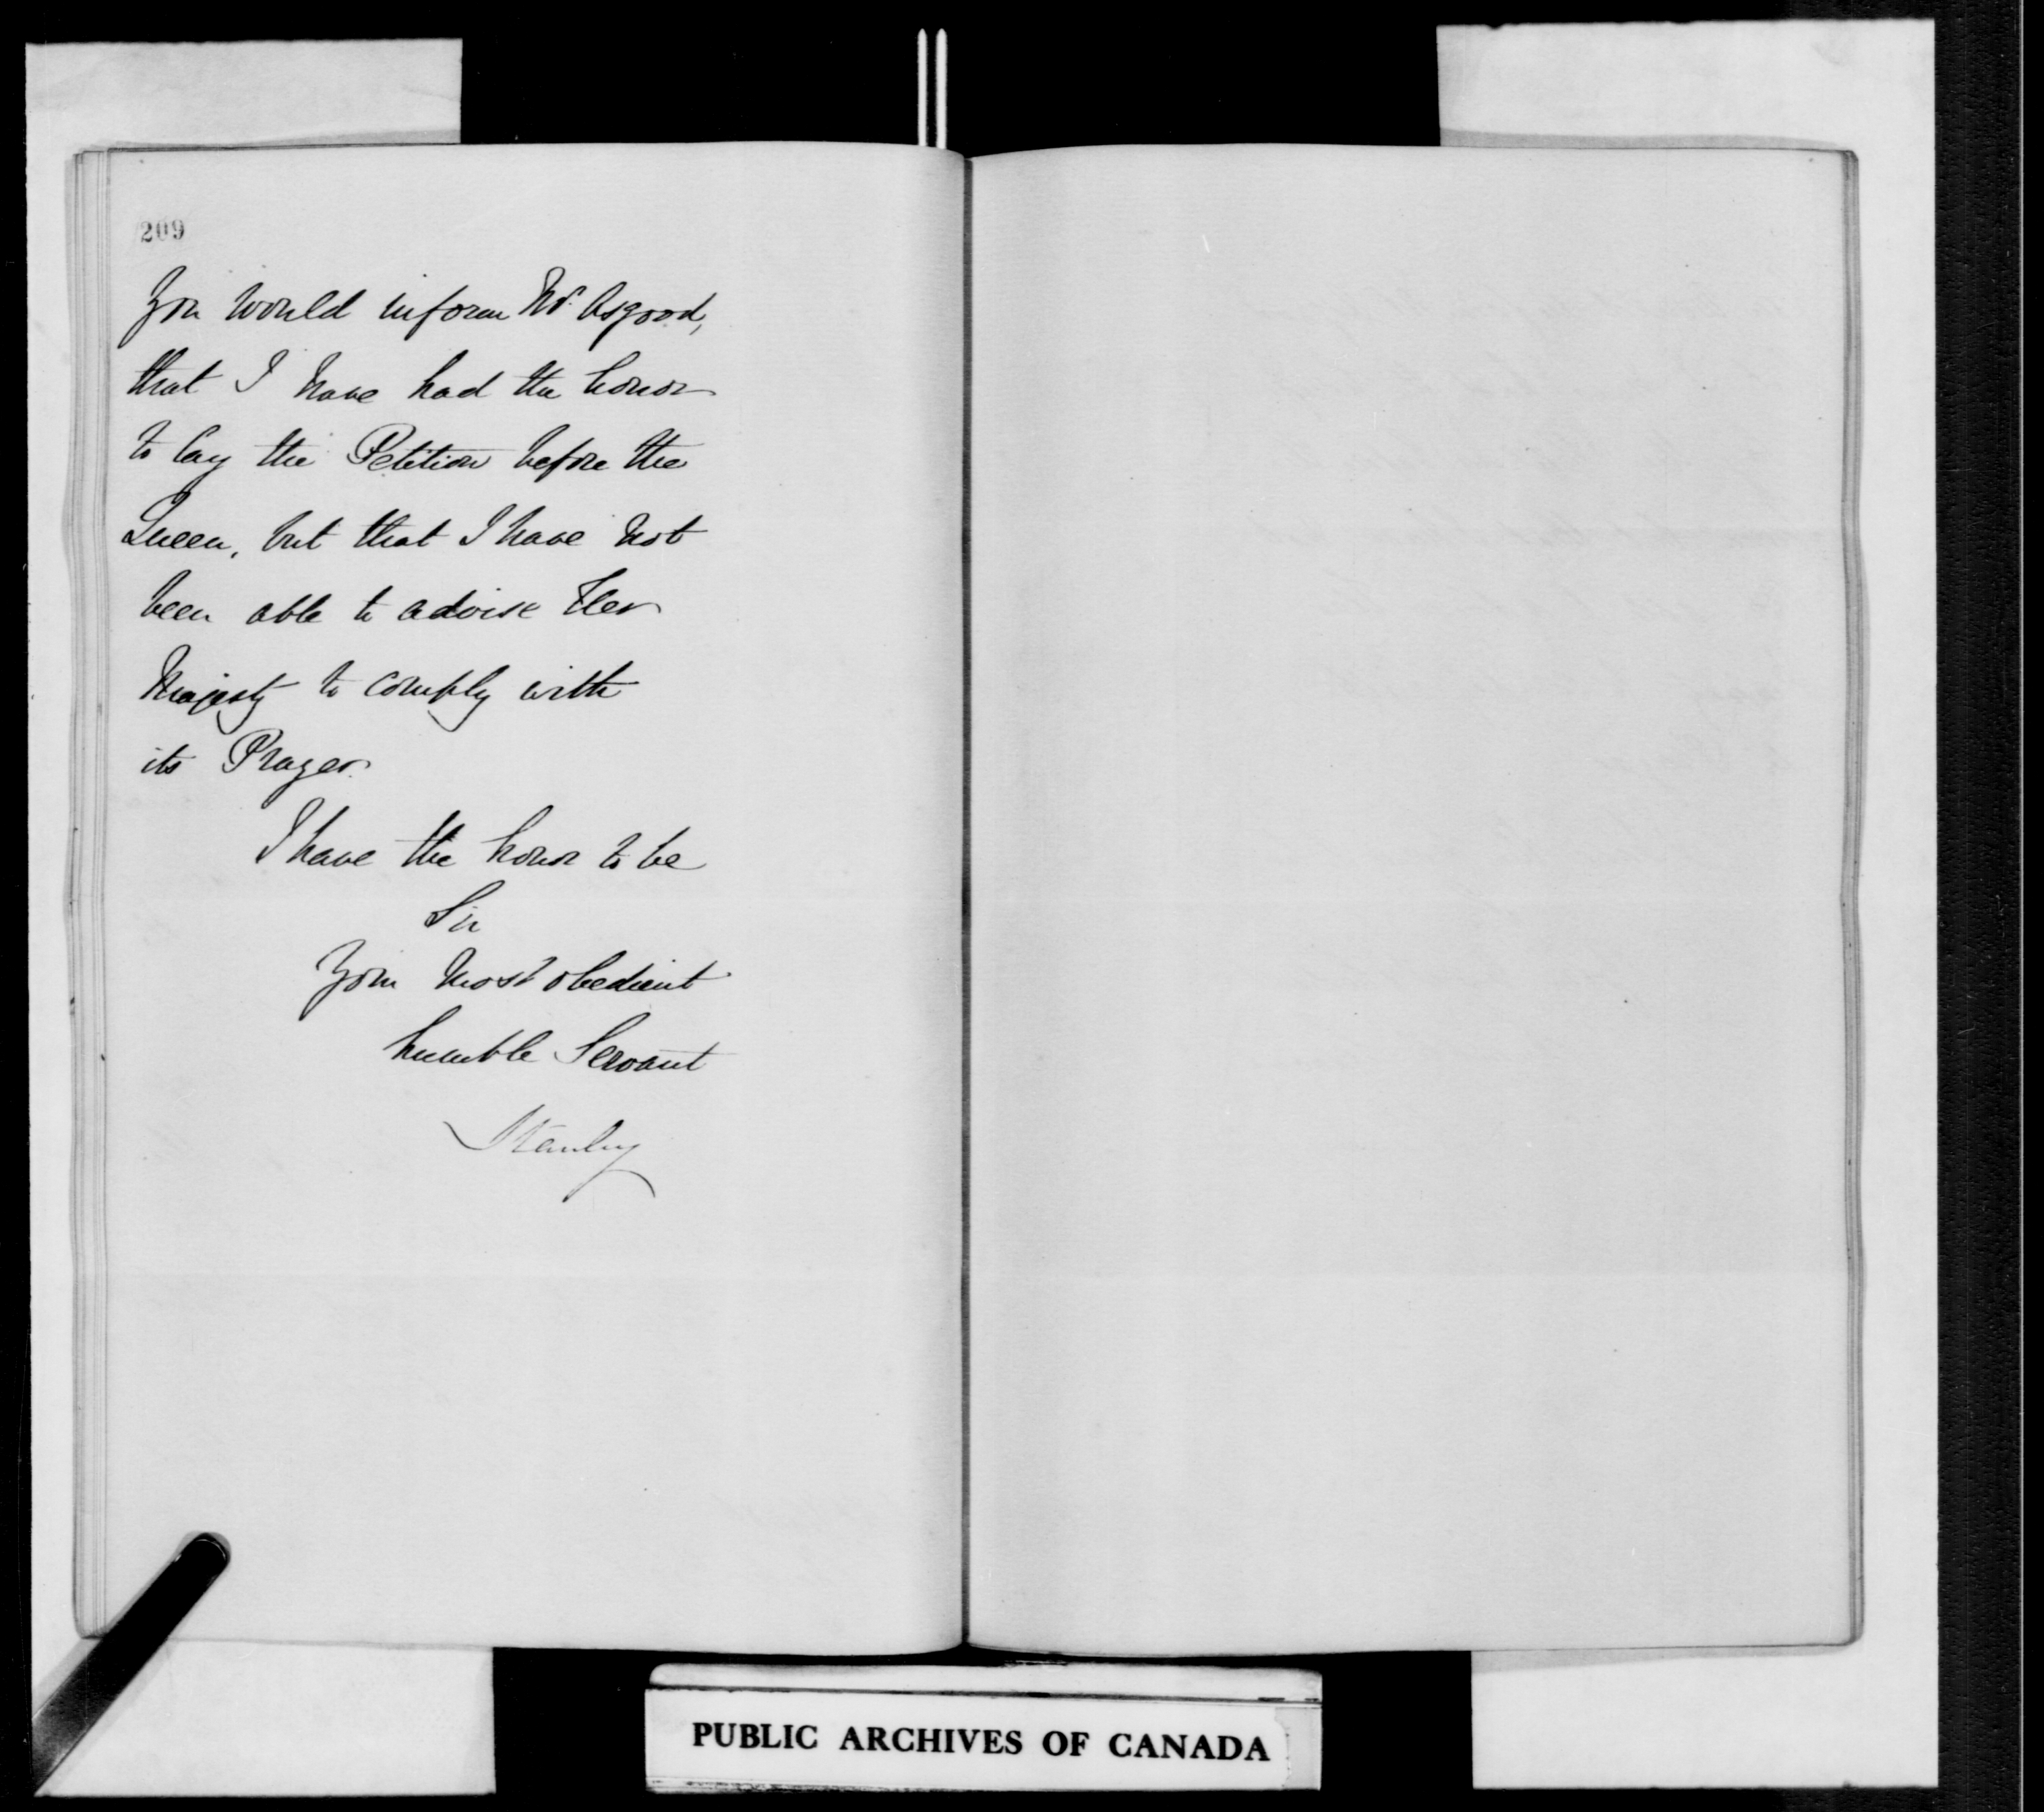 209
You would inform Mr. Osgood,
that I have had the honor
to lay the Petition before the
Queen, but that I have not
been able to advise Her
Majesty to comply with
its Prayer.
I have the honor to be
Sir
Your most obedient
humble Servant
Stanley
PUBLIC ARCHIVES OF CANADA